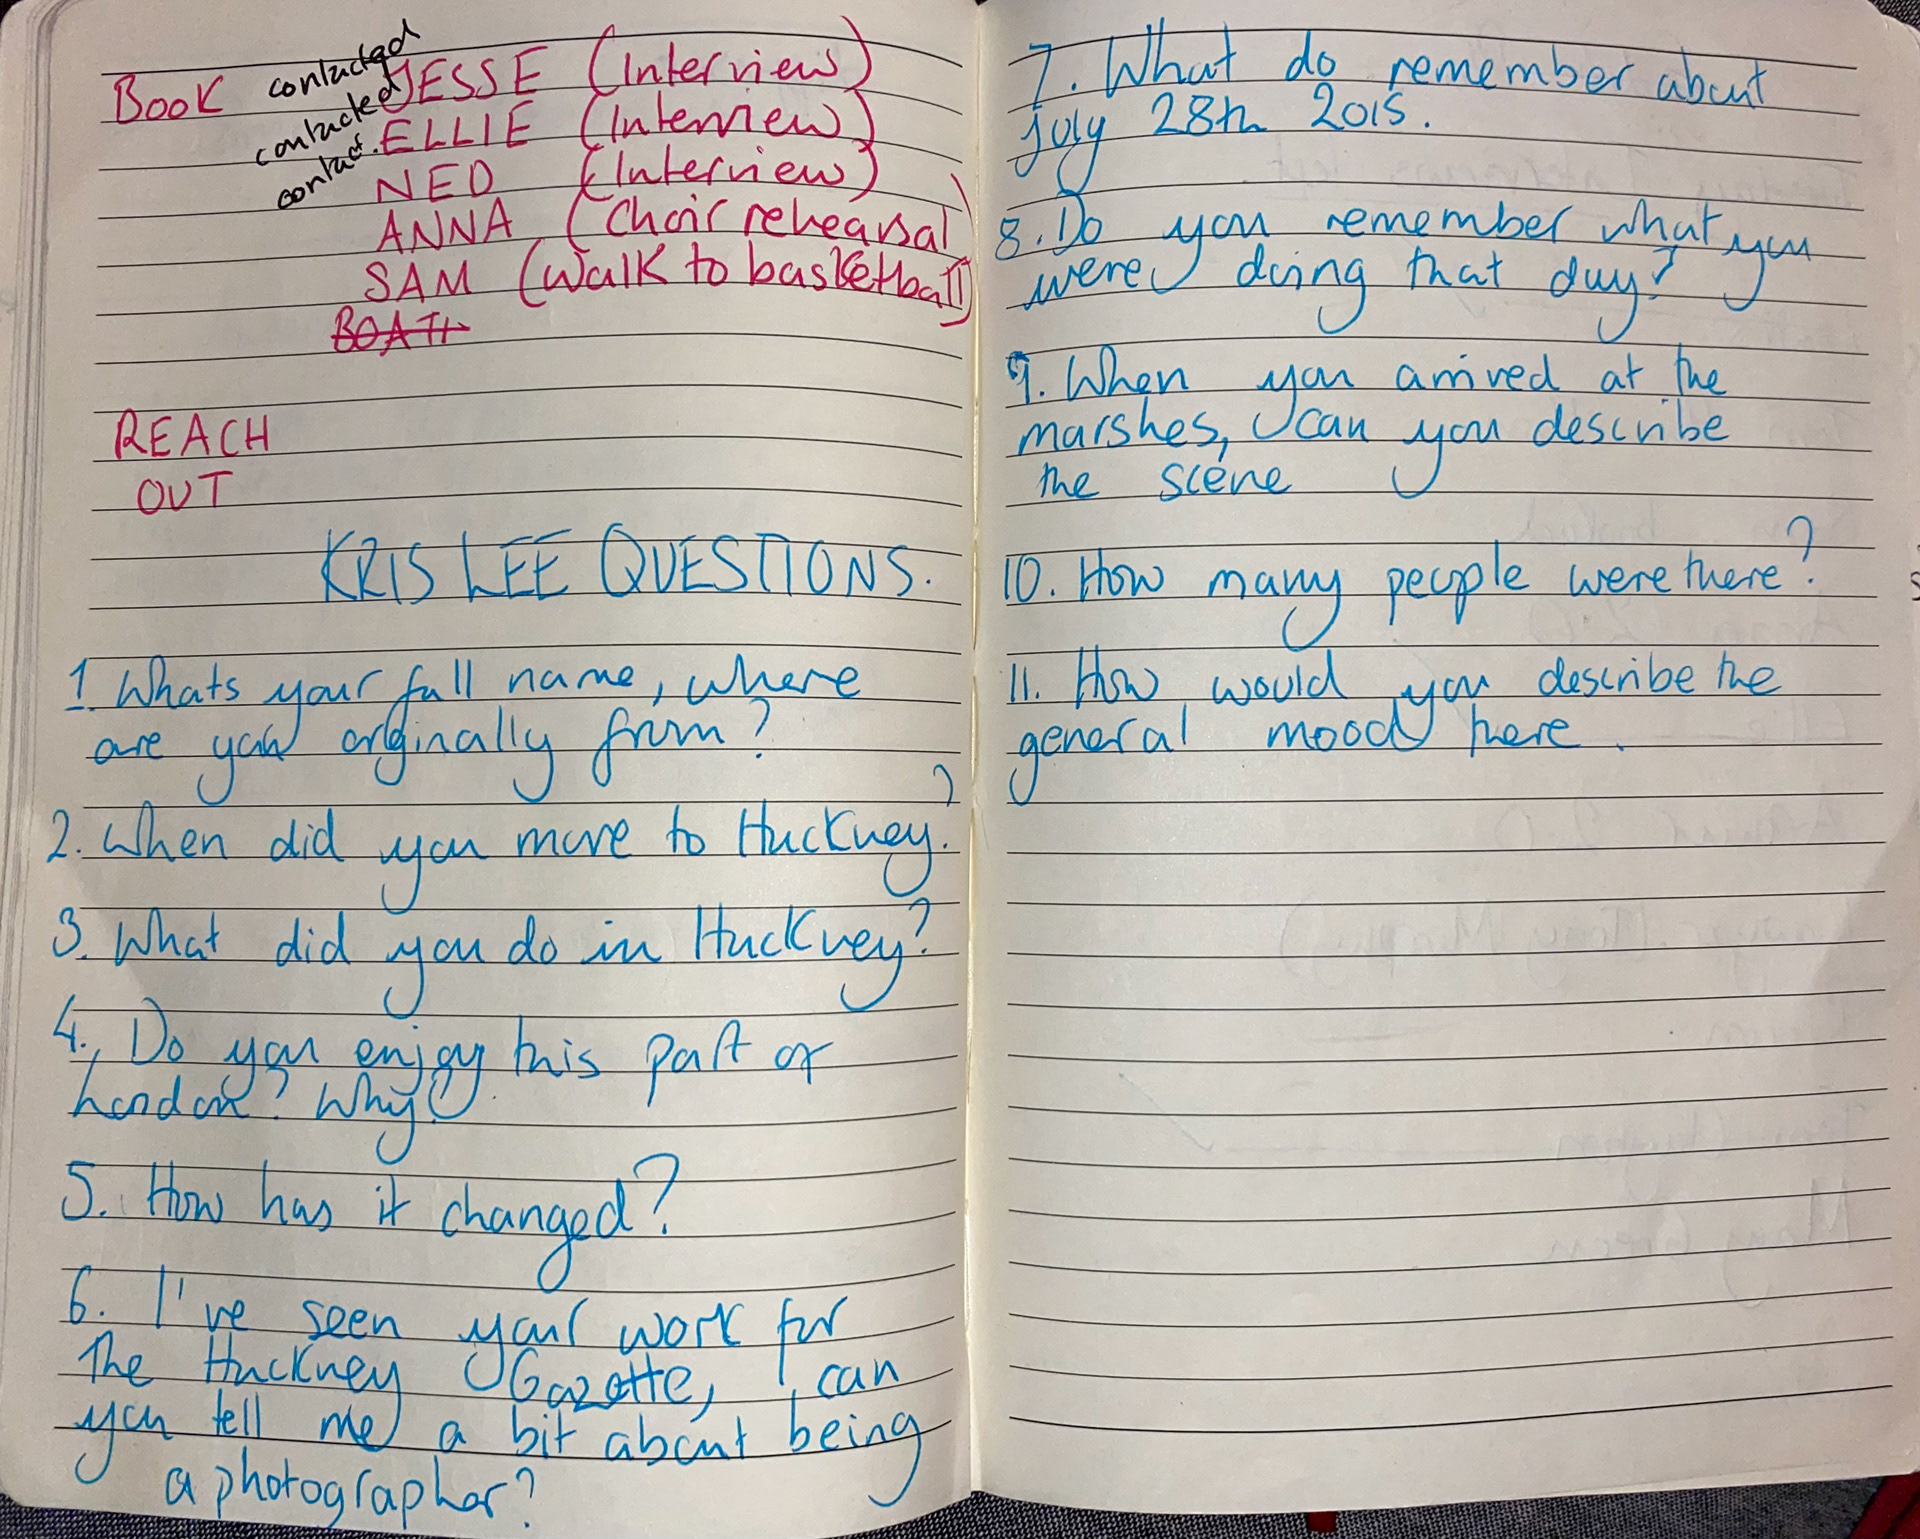 BOOK contacted JESSE (Interview)
contacted ELLIE (Interview)
contact. NED (Interview)
ANNA (Choir rehearsal)
SAM (Walk to basketball)
BOATH
REACH
OUT
KRIS LEE QUESTIONS.
1. Whats your full name, where
are you orginally from?
2. When did you move to Hackney?
3. What did you do in Hackney?
4. Do you enjoy this part of
London? Why?
5. How has it changed?
6. I've seen your work for
The Hackney Gazette, can
you tell me a bit about being
a photographer?
7. What do remember about
July 28th 2015.
8. Do you remember what you
were doing that day?
9. When you arrived at the
marshes, can you describe
the scene
10. How many people were there?
11. How would you describe the
general mood there.